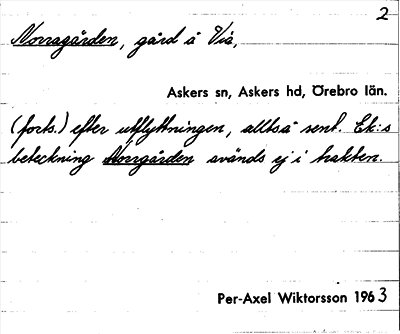 2
Norragården, gård å Via,
Askers sn, Askers hd, Örebro län.
(forts.) efter utflyttningen, alltså sent. Ek:s
beteckning Norrgården avänds ej i trakten.
Per-Axel Wiktorsson 1963